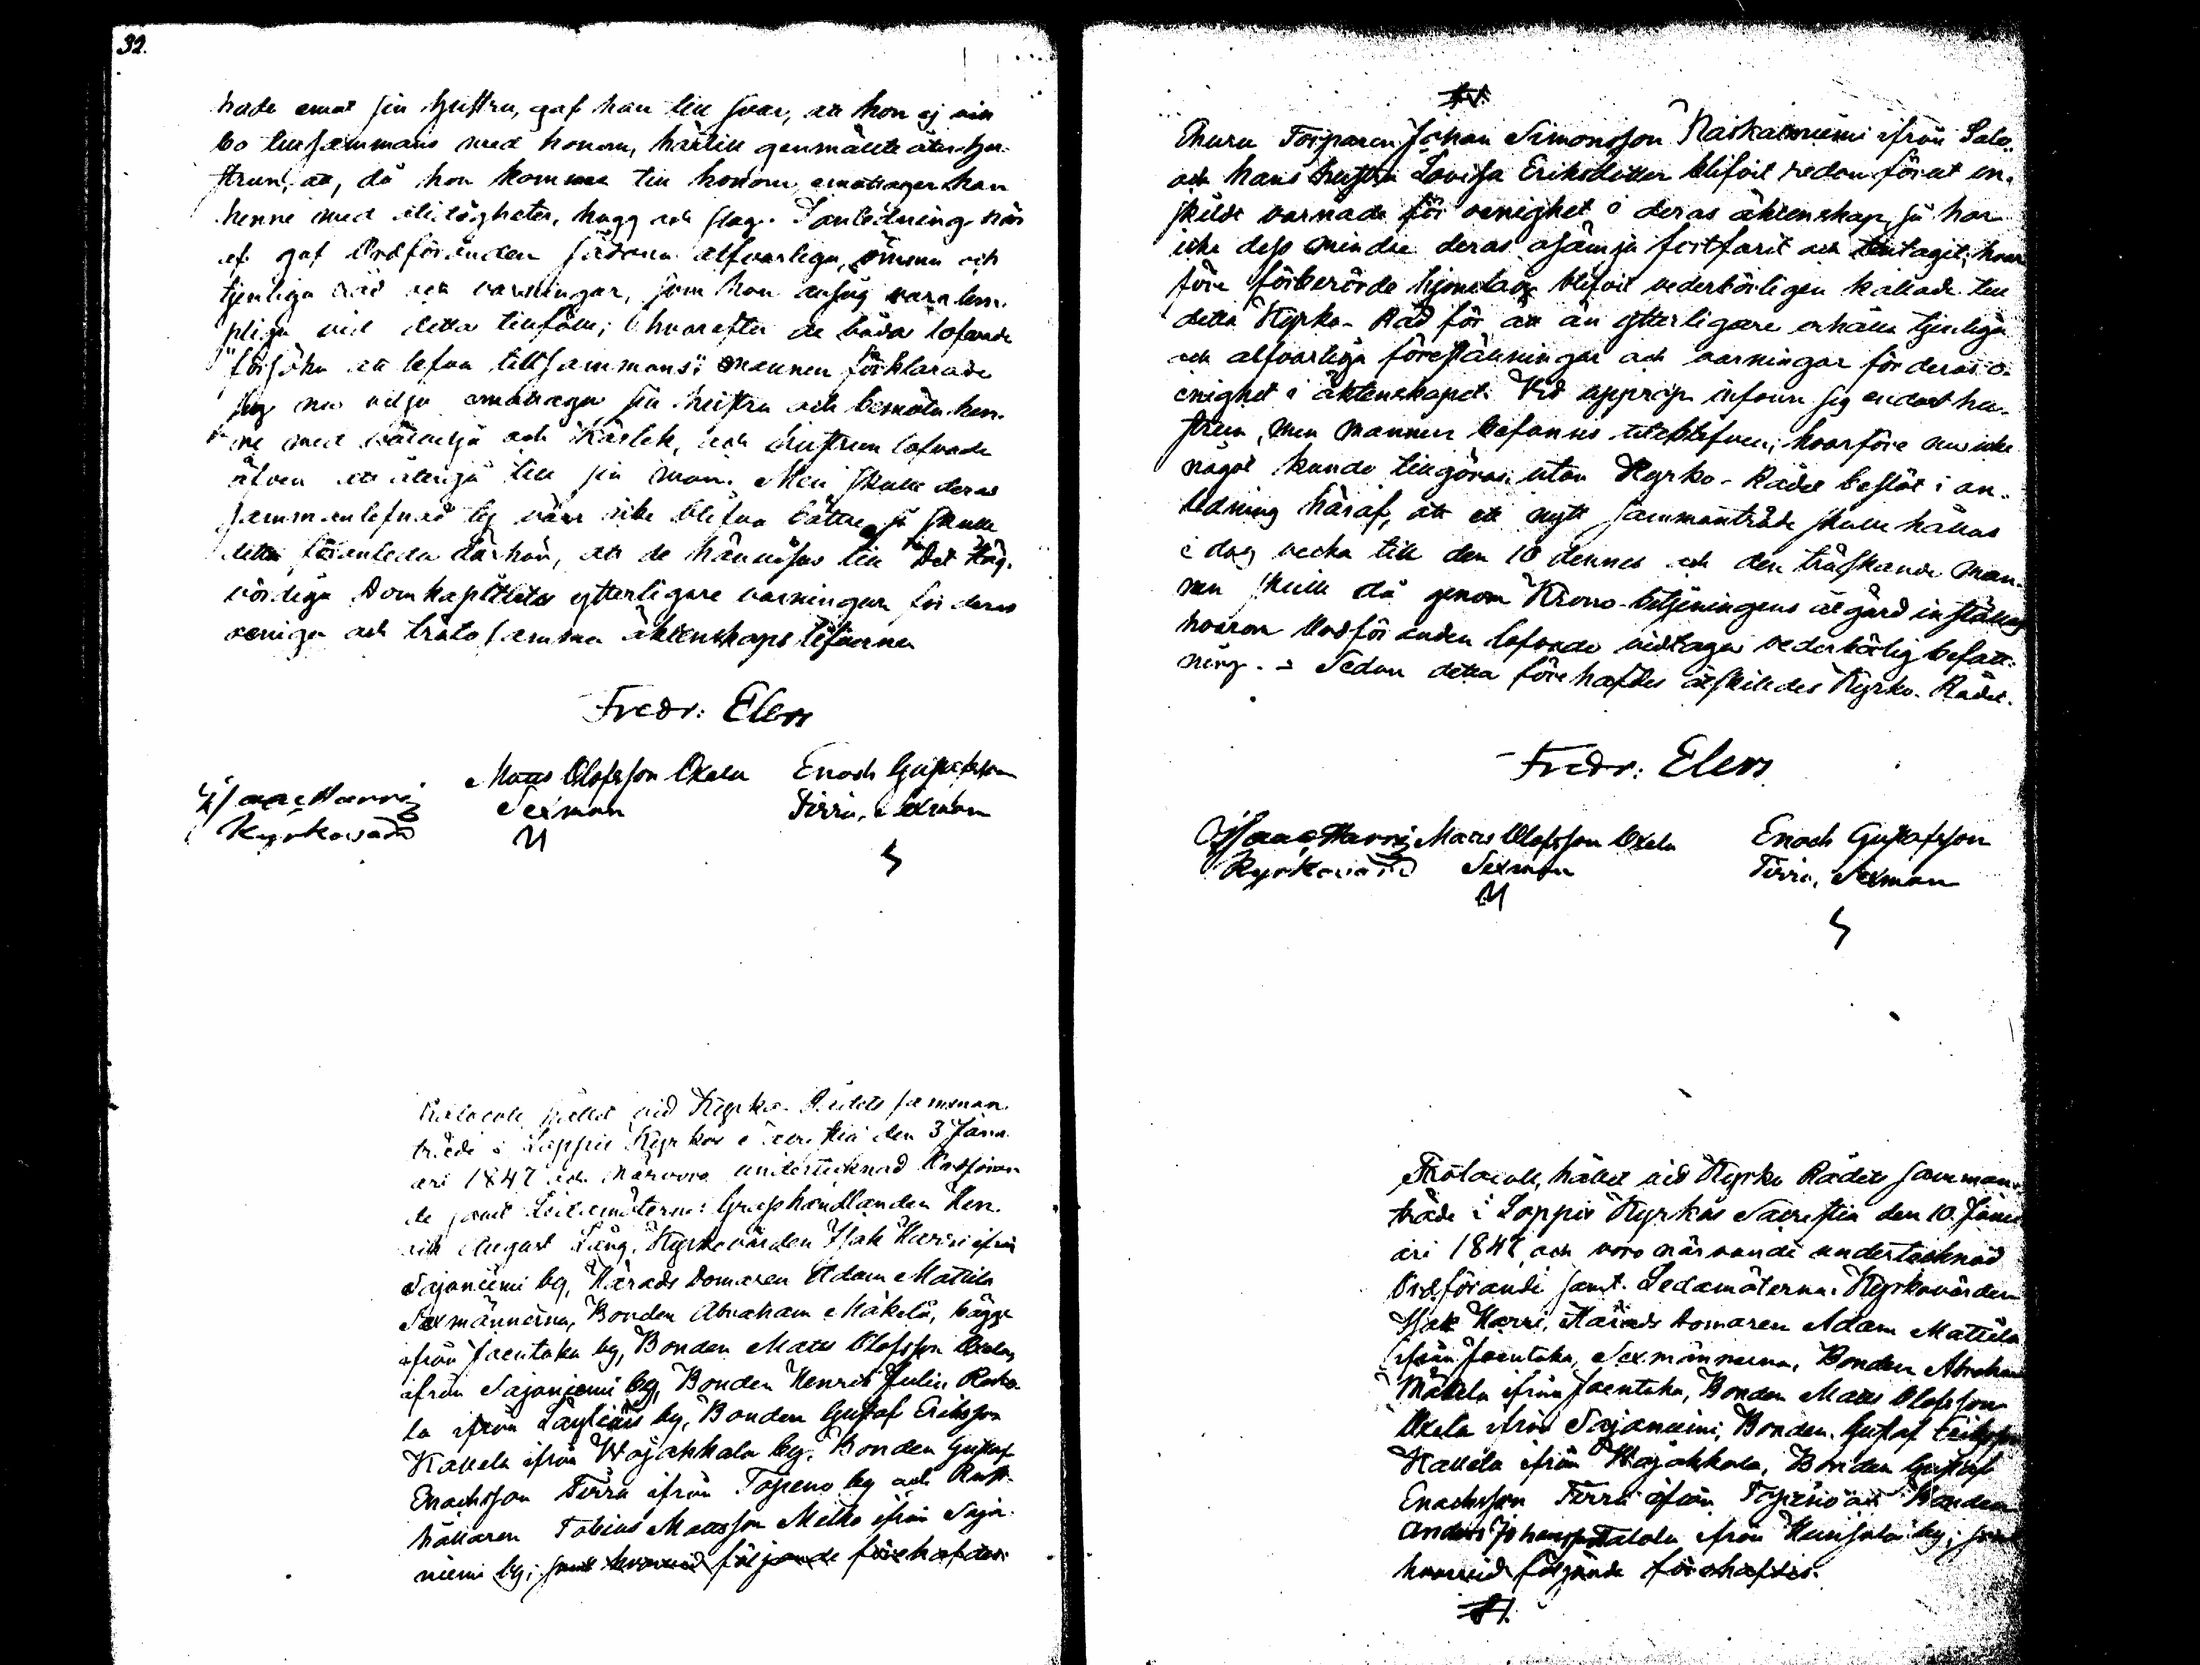 32.
hade emot sin hustru, gaf han till svar, att hon ej vill
bo tillsammans med honom, härtill genmälte åter hu-
strun, att, då hon kommer till honom, emottager han
henne med elakheter, hugg och slag. I anledning här
af gaf Ordföranden sådana alfvarliga, ömma och
tjenliga råd och varningar, som han ansåg vara läm-
pliga vid detta tillfälle; hvarefter de båda lofvade
"försöka att lefva tillsammans"; mannen förklarade
sig nu vilja emottaga sin hustru och bemöta hen-
ne med och kärlek, och hustrun lofvade
äfven att återgå till sin man. Men skulle deras
sammanlefnad ej icke blifva bättre, så skulle
detta föranleda därhän, att de hänvisas till Det Hög-
vördiga Domkapitlets ytterligare varningar för deras
oeniga och trätosamma äktenskaps lefverne
Fredr: Elers
Isaac Harri Matts Olofsson Oxala Enoch Gustafsson
Kyrkovärd Sexman Tirra, Sexman
Protocoll hållet vid Kyrko-Rådets samman-
träde i Loppis Kyrkas Sacristia den 3 Janu-
ari 1847 och närvoro undertecknad Ordföran-
de samt Ledamöterne: Handlanden Hen-
rik August Lång, Kyrkovärden Isak Harri ifrån
Sajaniemi by, Härads Domaren Adam Mattila
Sexmännerna, Bonden Abraham Mäkelä, bägge
ifrån Joentaka by, Bonden Matts Olofsson Oxala,
ifrån Sajaniemi by, Bonden Henrik Julin
la ifrån Läyliäis by, Bonden Gustaf Eriksson
Kallela ifrån Wojakkala by, Bonden Gustaf
Enochsson Tirra ifrån Topeno by och Rust-
hållaren Tobias Mattsson Melko ifrån Saja-
niemi by; samt hvarvid följande förehafdes:
§ 1.
Ehuru Torparen Johan Simonsson Naskalniemi ifrån Salo
och hans hustru Lovisa Eriksdotter blifvit redan förut en-
skildt varnade för oenighet i deras äktenskap, så har
icke dess mindre deras osämja fortfarit och tilltagit; hvar-
före förberörde hjonelag blifvit vederbörligen kallade till
detta Kyrko-Råd för att än ytterligare erhålla tjenliga
och alfvarliga föreställningar och varningar för deras o-
enighet i äktenskapet. Vid upprop infann sig endast hu-
strun, men mannen befanns uteblefven; hvarföre nu icke
något kunde tillgöras utan Kyrko-Rådet beslöt i an-
ledning häraf, att ett nytt sammanträde skulle hållas
i dag vecka till den 10 dennes och den tredskande man-
nen skulle då genom Krono-betjeningens åtgärd inställas
hvarom Ordföranden lofvade vidtaga vederbörlig befatt-
ning. - Sedan detta förehafdes åtskildes Kyrko-Rådet.
Fredr: Elers
Isaac Harri Matts Olofsson Oxala Enoch Gustafsson
Kyrkovärd Sexman Tirra, Sexman
Protocoll, hållet vid Kyrko Rådets samman-
träde i Loppis Kyrkas Sacristia den 10 Janu-
ari 1847, och voro närvarande undertecknad
Ordförande samt Ledamöterna: Kyrkovärden
Isak Harri, Härads Domaren Adam Mattila
ifrån Joentaka, Sexmännerna, Bonden Abraham
Mäkelä ifrån Joentaka, Bonden Matts Olofsson
Oxala ifrån Sajaniemi, Bonden Gustaf Eriksson
Kallela ifrån Wojakkala, Bonden Gustaf
Enochsson Tirra ifrån Topeno och Bonden
Anders Johansson Talola ifrån Hunsala by; samt
hvarvid följande förehafdes.
§ 1.